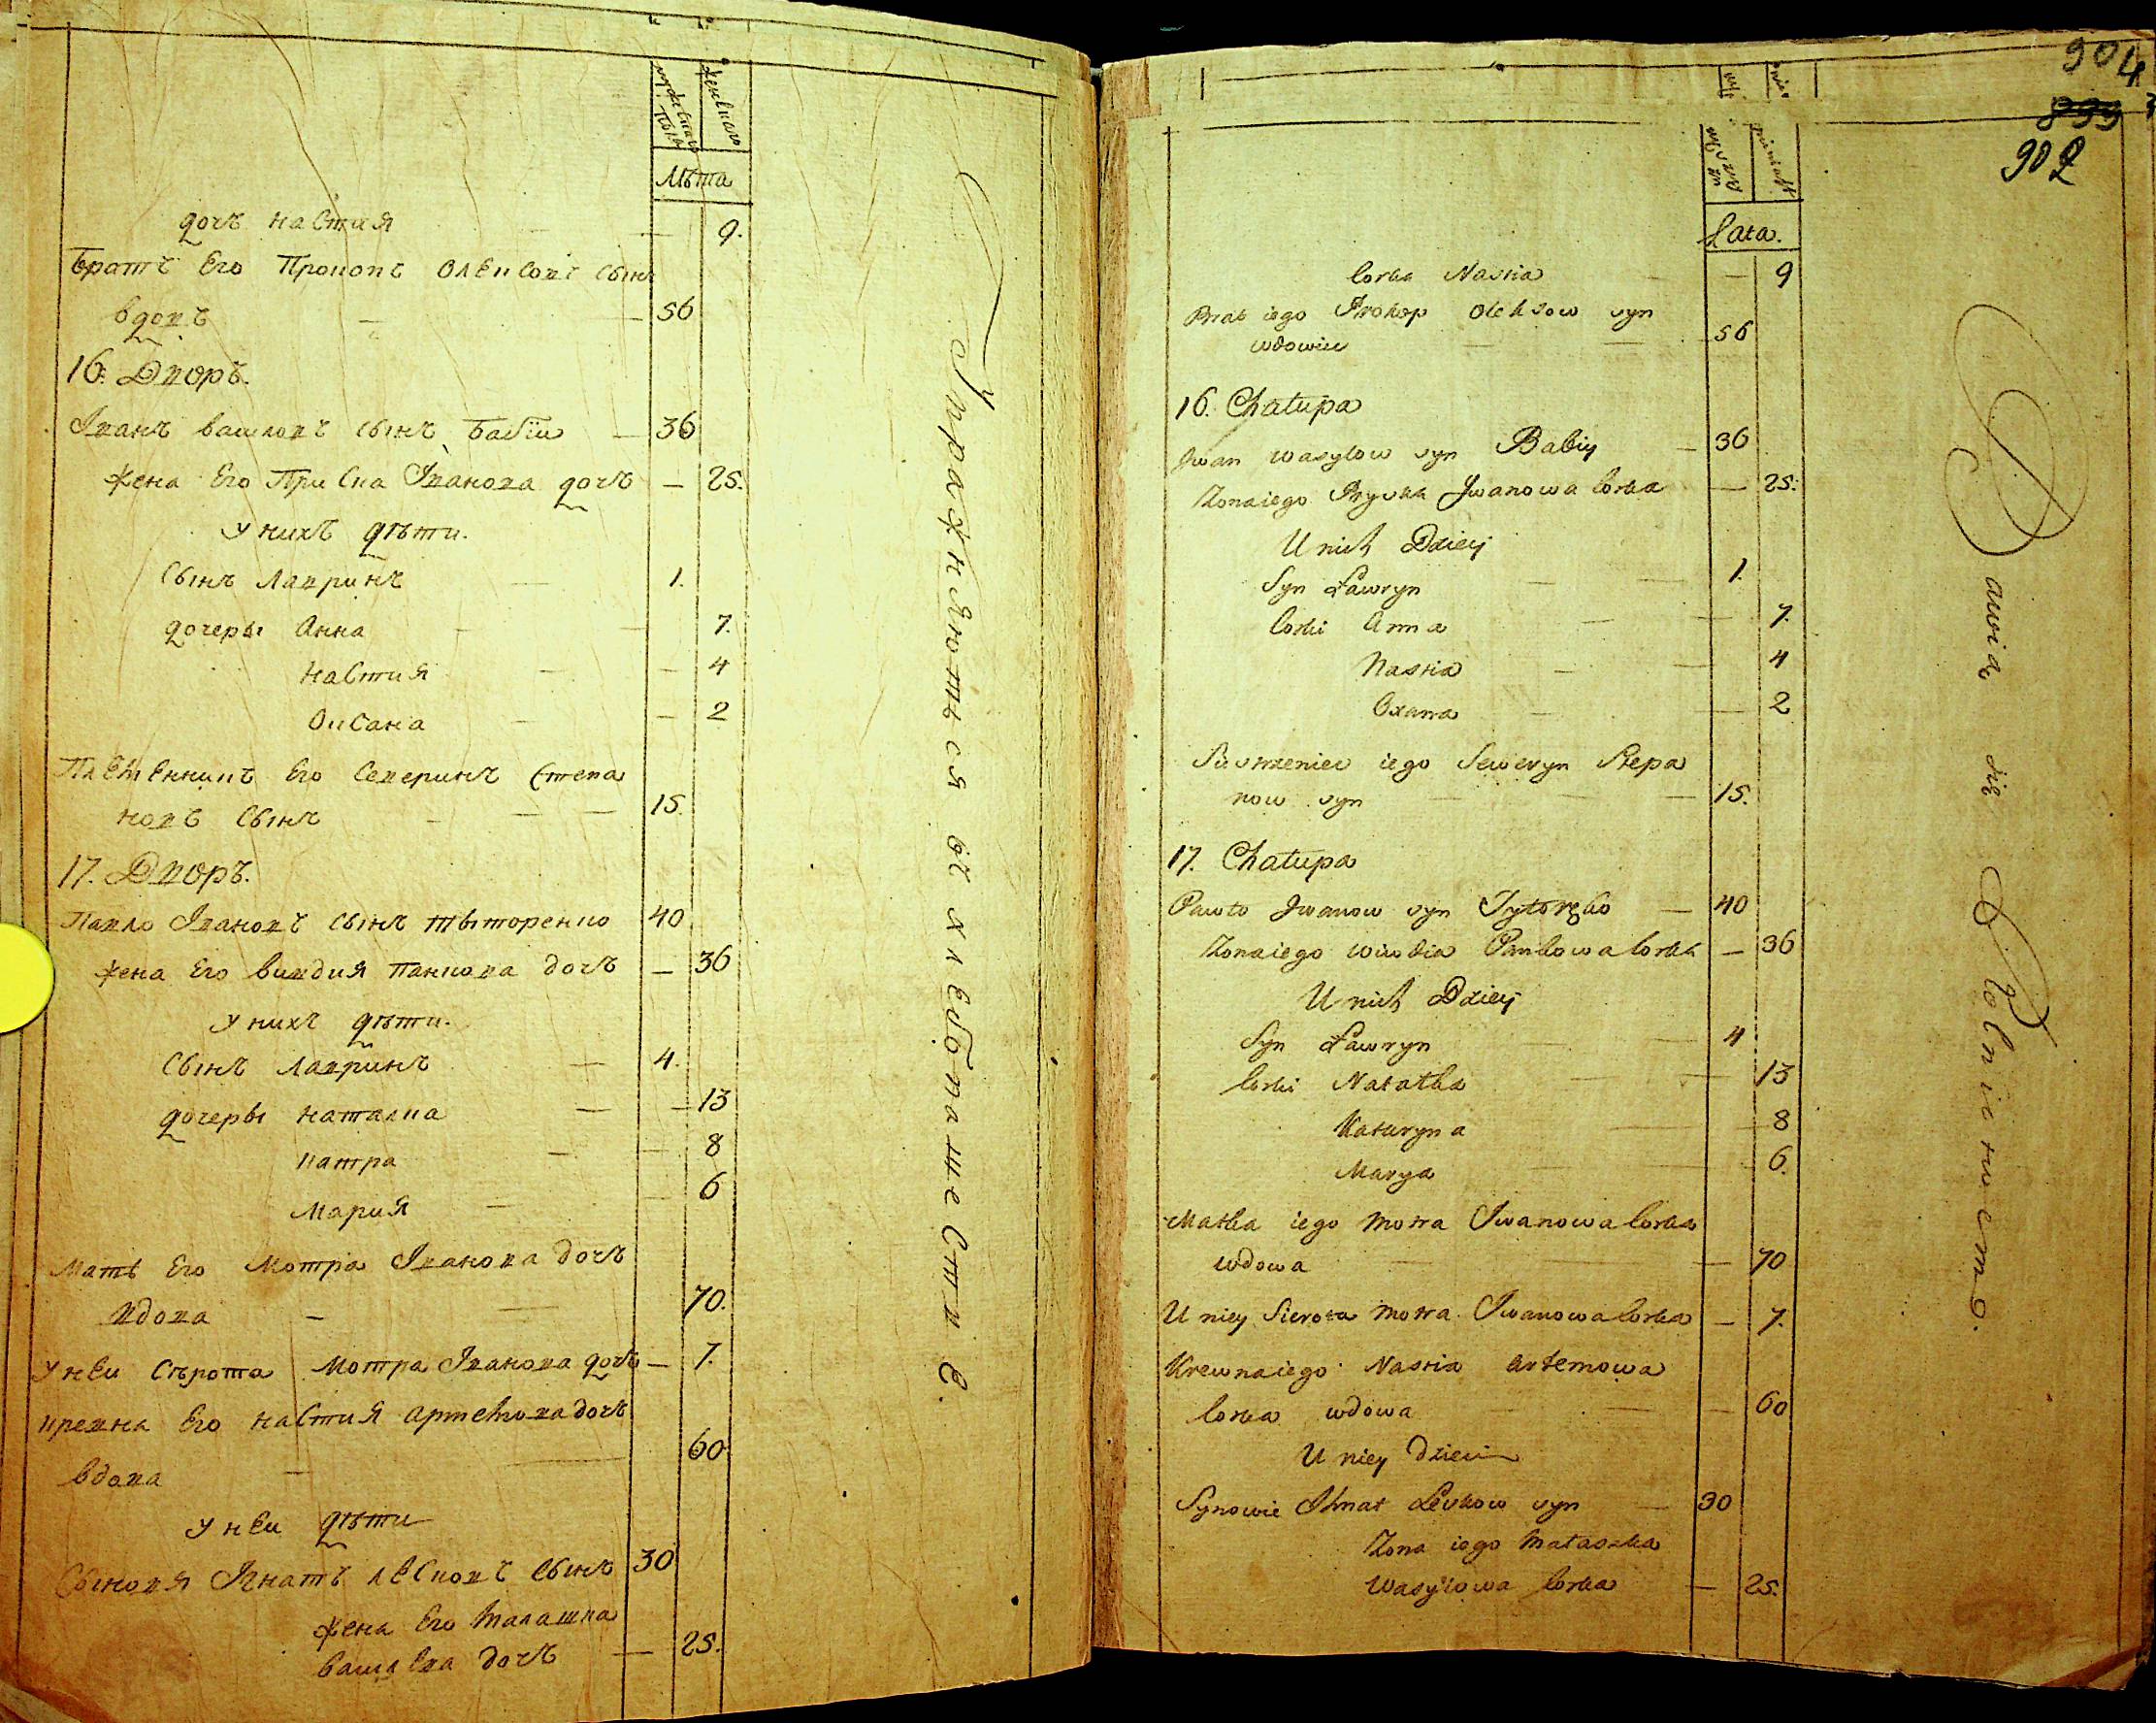 мужескаго пола
женскаго
лѣта
дочъ настия — 9.
Братъ Его Прокопъ Олексовъ сынъ
вдовъ — 56
16. Дворъ.
Іванъ василовъ сынъ Бабiи — 36
жена ЕгоПриска Іванова дочъ — 25.
У нихъ дѣти.
Сынъ лавринъ — 1.
дочеры Анна — 7.
настия — 4
Оксана — 2
Племенникъ Его Северинъ Степа
новъ сынъ — 15.
17. Дворъ.
Павло Івановъ сынъ тыторенко 40
жена Его вивдия панкова дочъ — 36
У нихъ дѣти.
Сынъ лавринъ — 4.
дочеры наталка — 13
катра — 8
Мария — 6
Мать Его Мотра Іванова дочъ
вдова — 70.
У неи сѣрота Мотра Іванова дочъ — 7.
кревна Его настия артемова дочъ
вдова — 60
У неи дѣти
Сыновя Ігнатъ лесковъ сынъ 30
жена Его Малашка
василева дочъ — 25.
Упражняютьса въ хлебопашестве.
904
899
902
Lata.
Corka Nastia — 9
Brat iego Prokop Olexow syn
wdowiec — 56
16. Chałupa
Jwan wasylow syn Babiy — 36
Zona iego Pryska Jwanowa Corka — 25.
U nich Dzieci
Syn Ławryn — 1.
Corki Anna — 7.
Nastia — 4
Oxana — 2
Siestrzeniec iego Seweryn Stepa
now syn — 15.
17. Chałupa
Pawło Jwanow syn Tytoręko — 40
Zona iego wiwdia Pankowa Corka — 36
U nich Dzieci
Syn Ławryn — 4
Corki Natałka — 13
Kateryna — 8
Marya — 6.
Matka iego Motra Jwanowa Corka
wdowa — 70
U niey Sierota Motra Jwanowa Corka — 7.
Krewna iego Nastia Artemowa
Corka wdowa — 60
U niey Dzieci
Synowie Ihnat Leskow syn — 30
Zona iego Małaszka
Wasylowa Corka — 25.
Bawią się Rolnictwem.